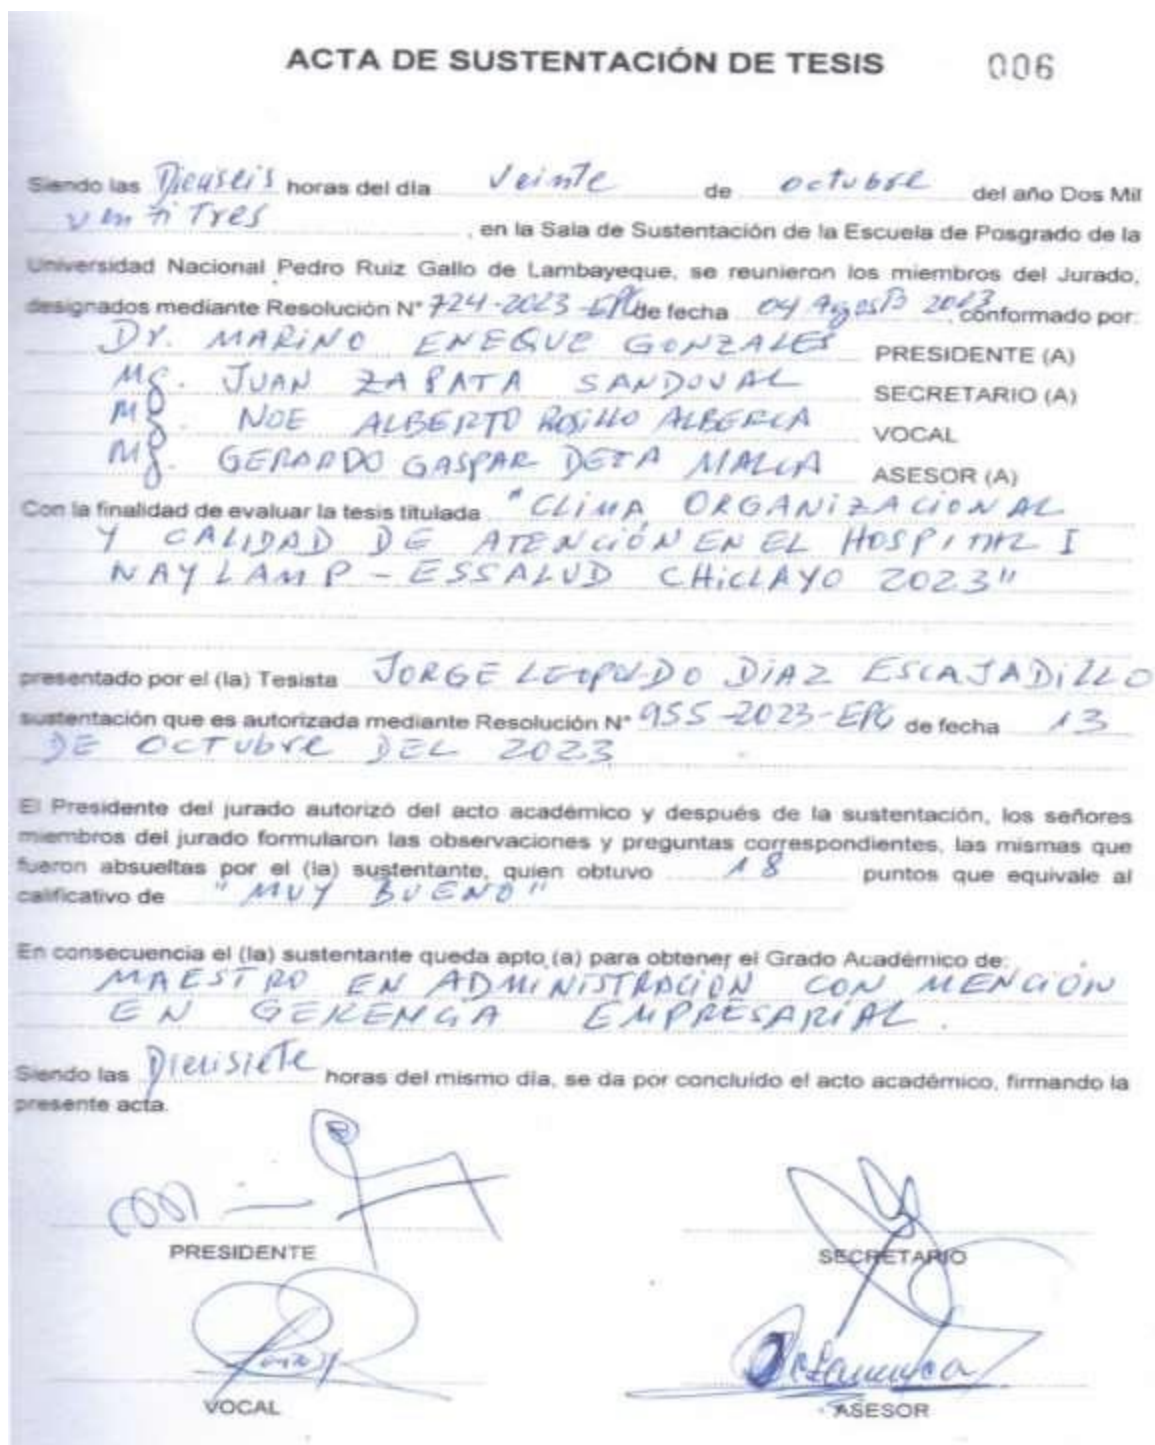 ACTA DE SUSTENTACIÓN DE TESIS 006
Siendo las Dieciseis horas del día Veinte de octubre del año Dos Mil
ventiTres, en la Sala de Sustentación de la Escuela de Posgrado de la
Universidad Nacional Pedro Ruiz Gallo de Lambayeque, se reunieron los miembros del Jurado,
designados mediante Resolución N° 724-2023-EPG de fecha 04 Agosto 2023 conformado por:
Dr. MARINO ENEQUE GONZALES PRESIDENTE (A)
Mg. JUAN ZAPATA SANDOVAL SECRETARIO (A)
Mg. NOE ALBERTO ROSILLO ALBERCA VOCAL
Mg. GERARDO GASPAR DEZA MALCA ASESOR (A)
Con la finalidad de evaluar la tesis titulada "CLIMA ORGANIZACIONAL
Y CALIDAD DE ATENCIÓN EN EL HOSPITAL I
NAYLAMP - ESSALUD CHICLAYO 2023"
presentado por el (la) Tesista JORGE LEOPOLDO DIAZ ESCAJADILLO
sustentación que es autorizada mediante Resolución N° 955-2023-EPG de fecha 13
DE OCTUbre DEL 2023
El Presidente del jurado autorizó del acto académico y después de la sustentación, los señores
miembros del jurado formularon las observaciones y preguntas correspondientes, las mismas que
fueron absueltas por el (la) sustentante, quien obtuvo 18 puntos que equivale al
calificativo de "MUY BUENO"
En consecuencia el (la) sustentante queda apto (a) para obtener el Grado Académico de:
MAESTRO EN ADMINISTRACIÓN CON MENCIÓN
EN GERENCIA EMPRESARIAL.
Siendo las Diecisiete horas del mismo día, se da por concluido el acto académico, firmando la
presente acta.
PRESIDENTE SECRETARIO
VOCAL ASESOR